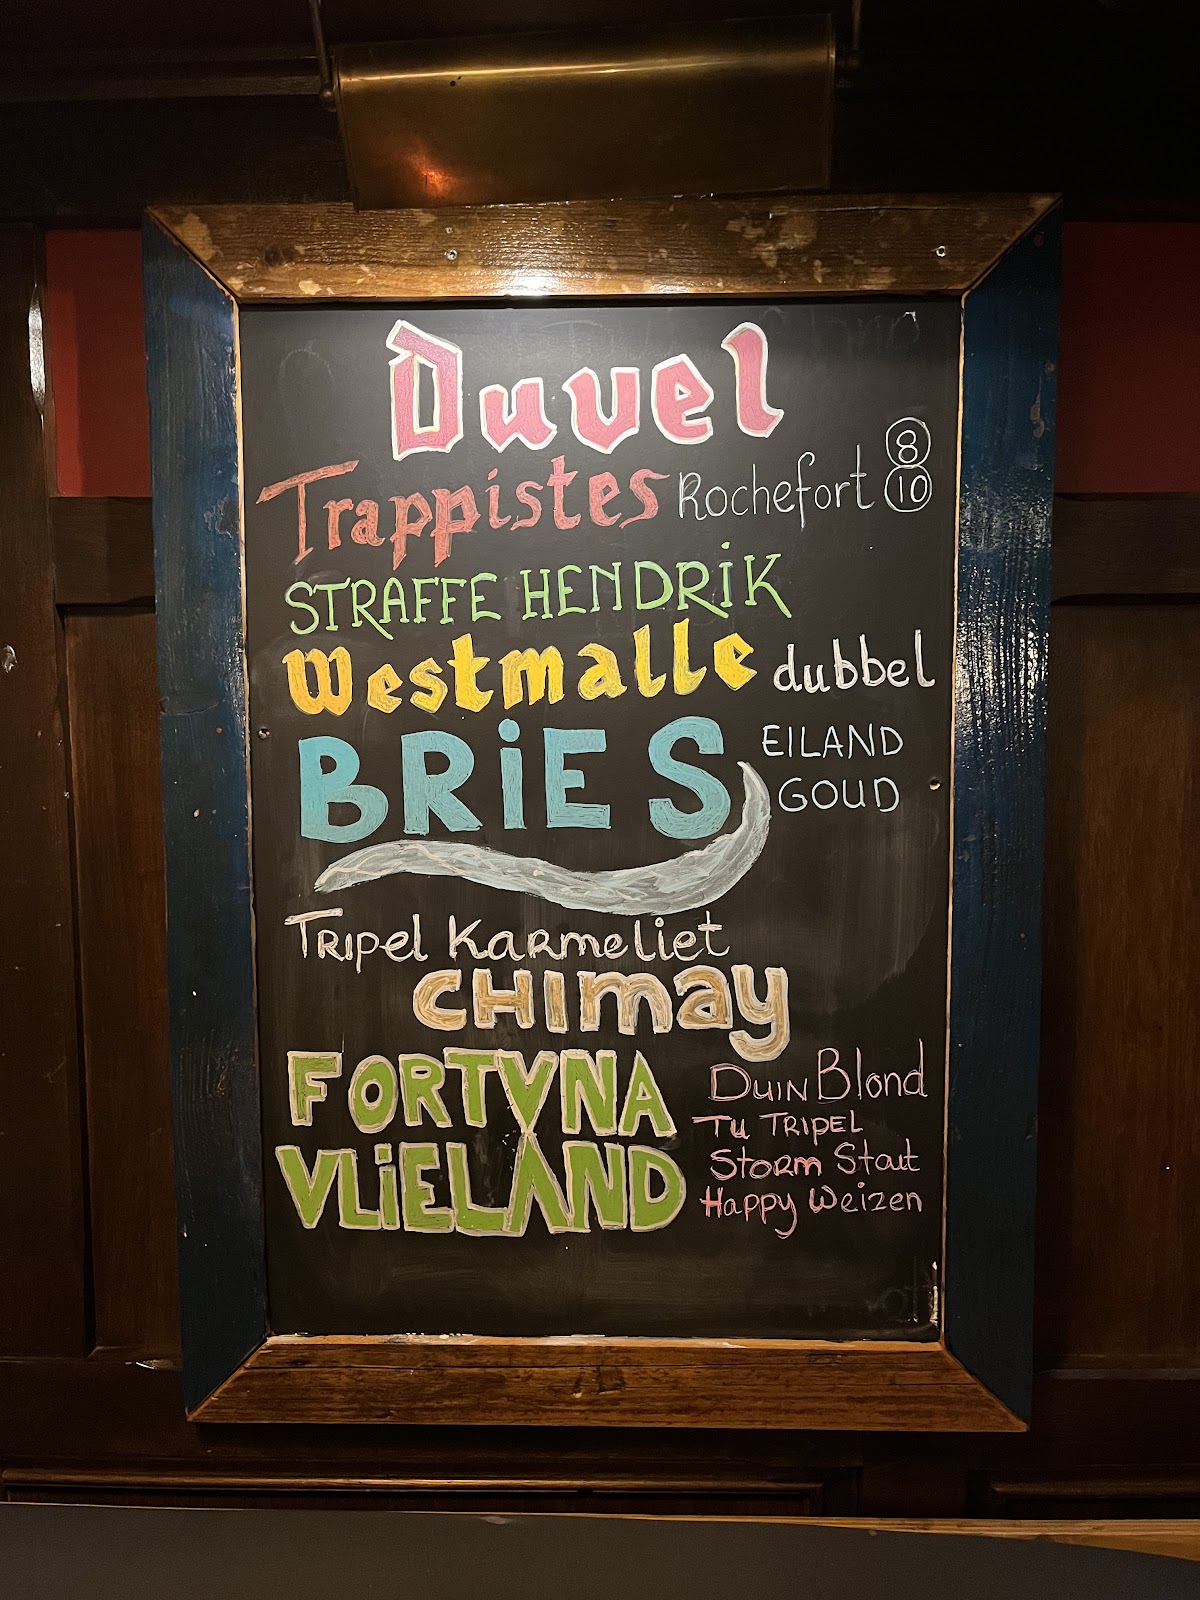 Duvel
Trappistes Rochefort 8 10
STRAFFE HENDRiK
Westmalle dubbel
BRiES EILAND
GOUD
TRipel KaRmeLiet
CHimay
FORTVNA DuiN Blond
VLiELAND Tu TRIPEL
StoRm Stout
Happy Weizen